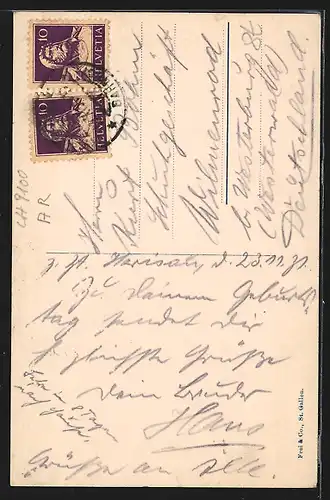 10 HELVETIA
10 HELVETIA
BAHN
CH 9100
AR
Herrn
Kurt
Schuhgeschäft
Wilmenrod
b. Westerburg
(Westerwald)
Deutschland.
z. Zt. Herisau, d. 23.11.31.
Zu Deinem Geburts
tag sendet dir
herzlichste Grüße
Dein Bruder
Hans
Grüße an alle.
Frei & Co., St. Gallen.